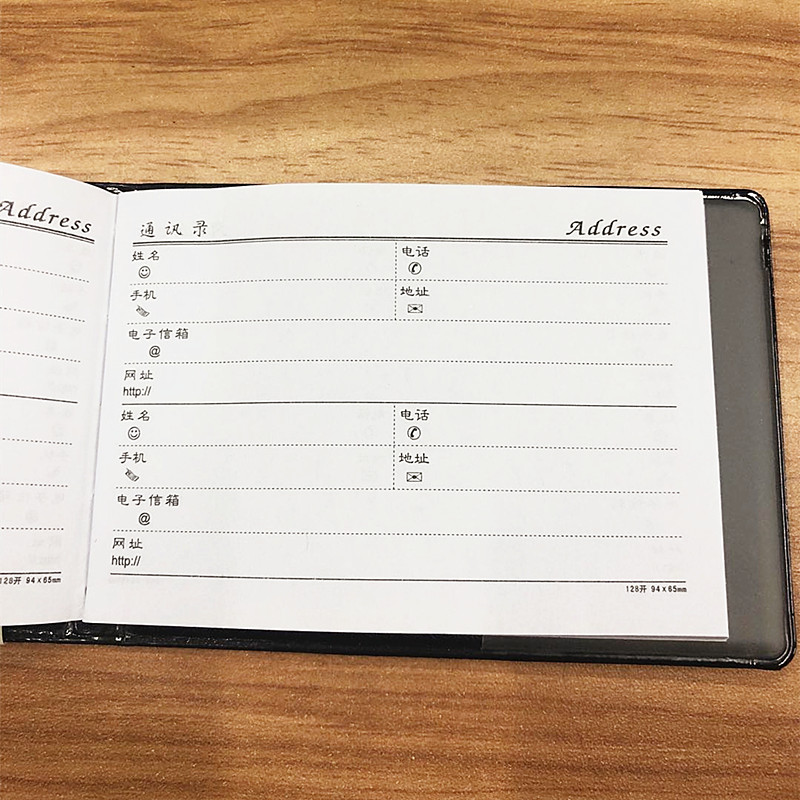 Address
128开 94x65mm
通讯录 Address
姓名 电话
手机 地址
电子信箱
@
网址
http://
姓名 电话
手机 地址
电子信箱
@
网址
http://
128开 94x65mm